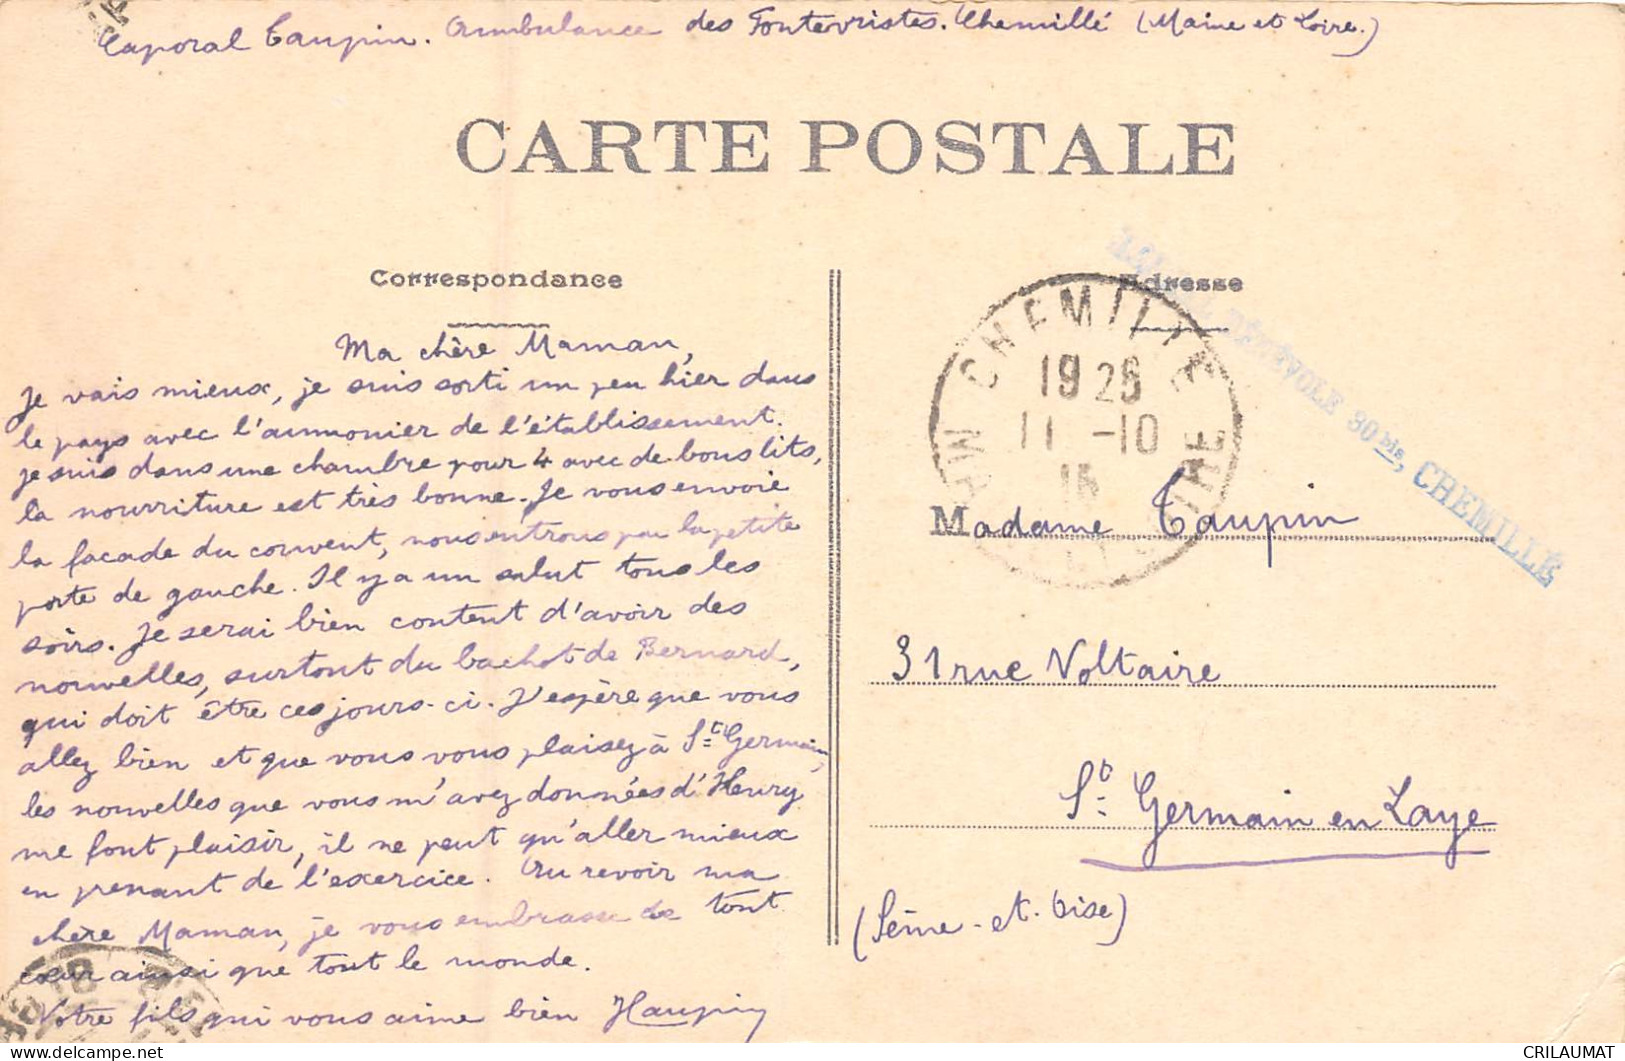 Caporal Taupin. Ambulance des Fontevristes. Chemillé (Maine et Loire.)
CARTE POSTALE
Correspondance
Adresse
Ma chère Maman,
Je vais mieux, je suis sorti un peu hier dans
le pays avec l'aumonier de l'établissement.
je suis dans une chambre pour 4 avec de bons lits,
la nourriture est très bonne. Je vous envoie
la façade du couvent, nous entrons par la petite
porte de gauche. Il y a un salut tous les
soirs. Je serai bien content d'avoir des
nouvelles, surtout du bachot de Bernard,
qui doit être ces jours-ci. J'espère que vous
allez bien et que vous vous plaisez à St Germain,
les nouvelles que vous m'avez données d'Henry
me font plaisir, il ne peut qu'aller mieux
en prenant de l'exercice. Au revoir ma
chère Maman, je vous embrasse de tout
cœur ainsi que tout le monde.
Votre fils qui vous aime bien HTaupin
CHEMILLE
19 25
11 -10
15
BÉNÉVOLE 30 bis, CHEMILLÉ
Madame Taupin
31 rue Voltaire
St Germain en Laye
(Seine-et-Oise)
CRILAUMAT